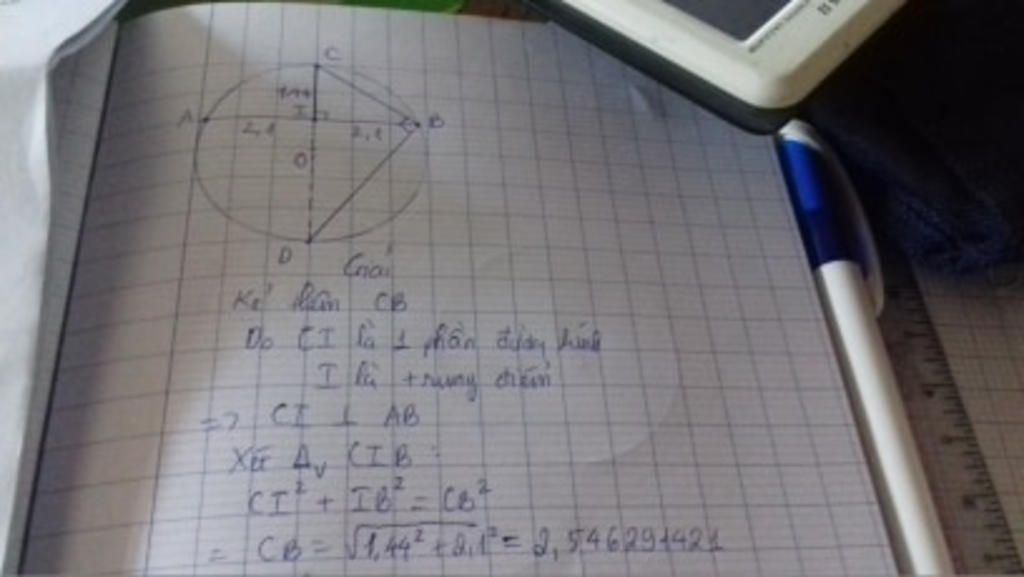 C
1,44
A I B
2,1 2,1
O
D
Giải
Kẻ thêm CB
Do CI là 1 phần đường kính
I là trung điểm
=> CI ⊥ AB
Xét Δv CIB :
CI² + IB² = CB²
= CB = √1,44² + 2,1² = 2,546291421